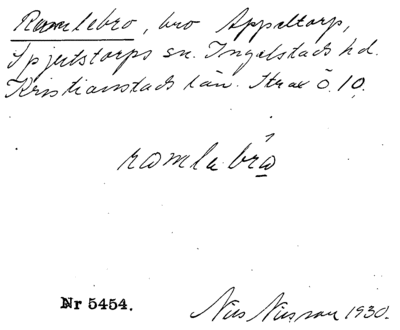 Ramlebro, bro Appeltorp,
Spjutstorps sn. Ingelstads hd.
Kristianstads län. Strax Ö. 10.
ramlebro
Nr 5454.
Nils Nilsson 1930.